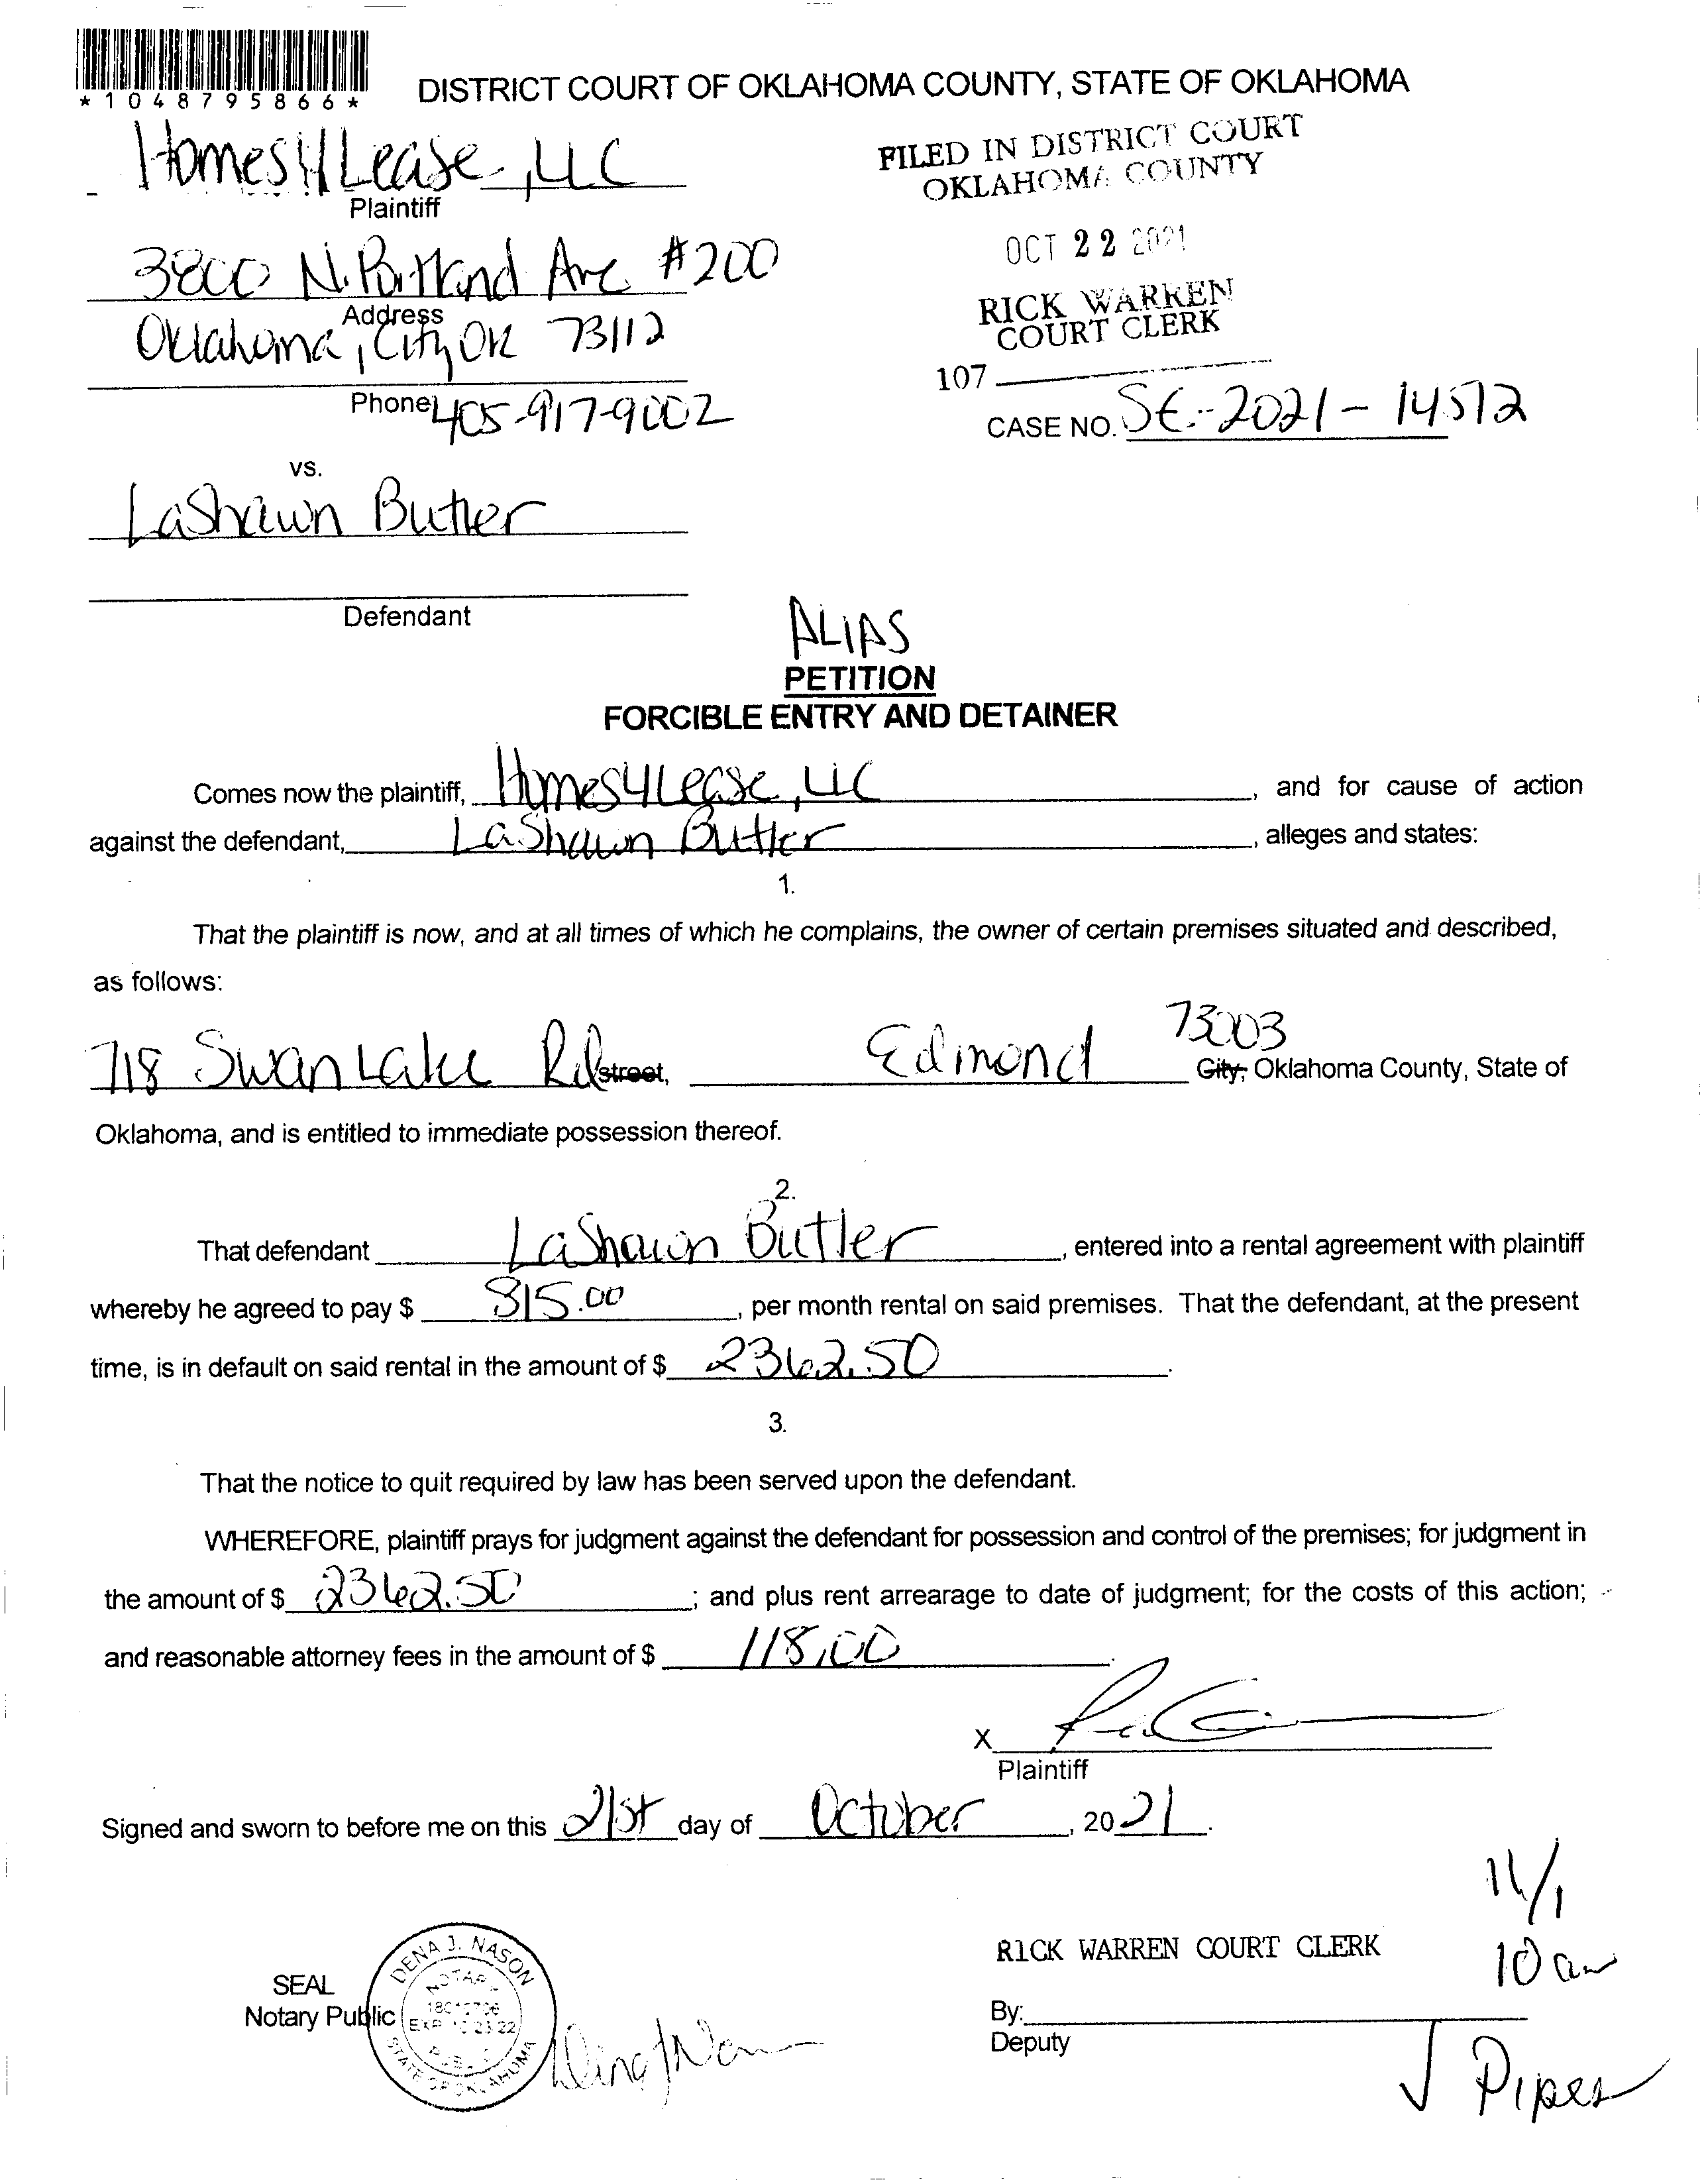 *1048795866*
DISTRICT COURT OF OKLAHOMA COUNTY, STATE OF OKLAHOMA
Homes4Lease, LLC
Plaintiff
FILED IN DISTRICT COURT
OKLAHOMA COUNTY
3800 N. Portland Ave #200
Address
OCT 22 2021
Oklahoma, City OK 73112
RICK WARREN
COURT CLERK
107
Phone 405-917-9002
CASE NO. SC-2021-14512
vs.
LaShawn Butler
Defendant
ALIAS
PETITION
FORCIBLE ENTRY AND DETAINER
Comes now the plaintiff, Homes4Lease, LLC, and for cause of action
against the defendant, LaShawn Butler, alleges and states:
1.
That the plaintiff is now, and at all times of which he complains, the owner of certain premises situated and described,
as follows:
73003
718 Swan Lake Rd street, Edmond City, Oklahoma County, State of
Oklahoma, and is entitled to immediate possession thereof.
2.
That defendant LaShawn Butler, entered into a rental agreement with plaintiff
whereby he agreed to pay $ 815.00, per month rental on said premises. That the defendant, at the present
time, is in default on said rental in the amount of $ 2362.50.
3.
That the notice to quit required by law has been served upon the defendant.
WHEREFORE, plaintiff prays for judgment against the defendant for possession and control of the premises; for judgment in
the amount of $ 2362.50; and plus rent arrearage to date of judgment; for the costs of this action;
and reasonable attorney fees in the amount of $ 118.00.
X
Plaintiff
Signed and sworn to before me on this 21st day of October, 2021.
11/1
10 am
RICK WARREN COURT CLERK
SEAL
Notary Public
DENA J. NASON
NOTARY
EXP. 10 23 22
PUBLIC
STATE OF OKLAHOMA
By:
Deputy
Pipes